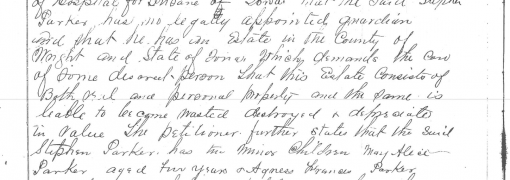 of Hospital for Insane of Iowa that the said Stephen
Parker has no legally appointed guardian
and that he has an Estate in the County of
Wright and State of Iowa Which demands the care
of Some discreet person That this Estate Consists of
Both real and personal Property and the Same is
leable to become wasted destroyed & depreciates
in Value The Petitioner further States that the said
Stephen Parker has two minor Children May Alice
Parker aged two years & Agness Frances Parker